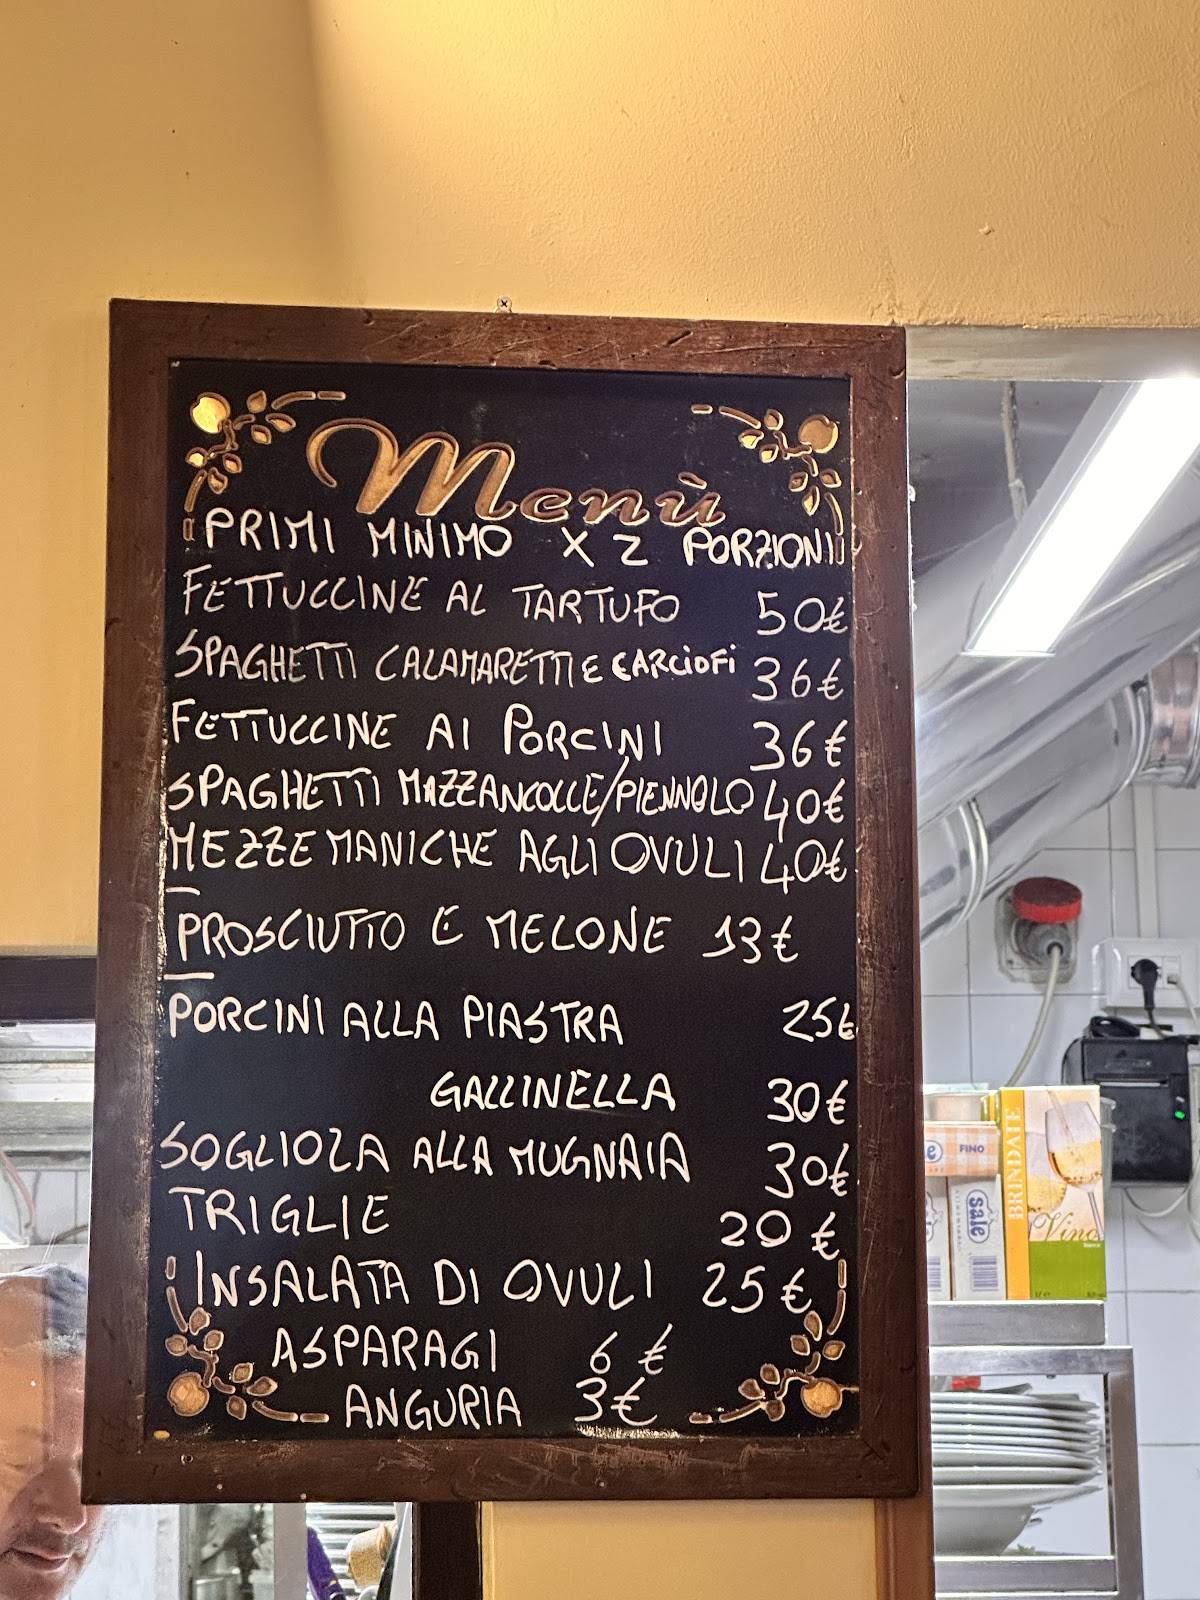 Menù
PRIMI MINIMO X 2 PORZIONI
FETTUCCINE AL TARTUFO 50€
SPAGHETTI CALAMARETTI E CARCIOFI 36€
FETTUCCINE AI PORCINI 36€
SPAGHETTI MAZZANCOLLE/PIENNOLO 40€
MEZZE MANICHE AGLI OVULI 40€
PROSCIUTTO E MELONE 13€
PORCINI ALLA PIASTRA 25€
GALLINELLA 30€
SOGLIOLA ALLA MUGNAIA 30€
TRIGLIE 20€
INSALATA DI OVULI 25€
ASPARAGI 6€
ANGURIA 3€
FINO
sale
BRINDATE
Vino